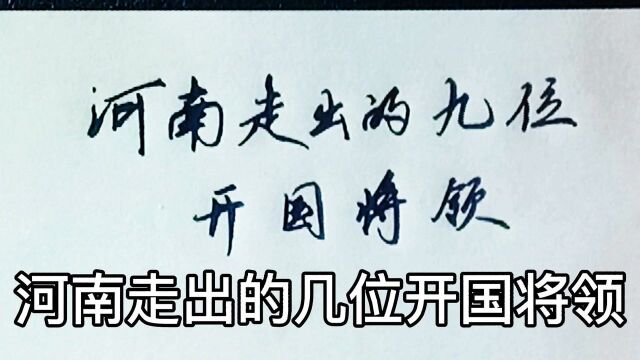 河南走出的九位
开国将领
河南走出的几位开国将领